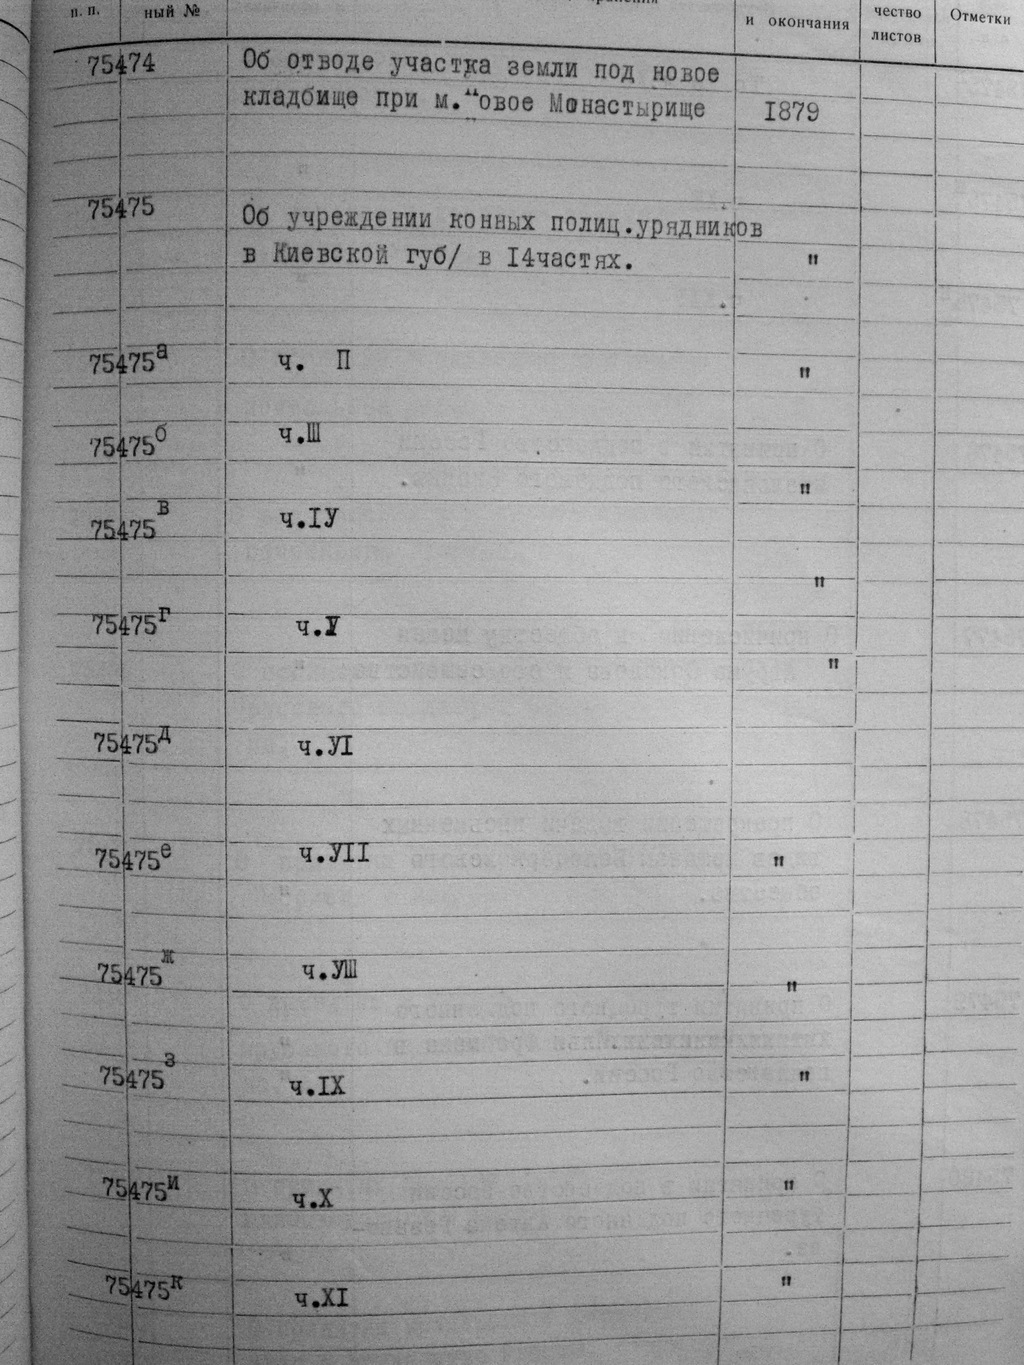 п. п. ный № и окончания чество листов Отметки
75474 Об отводе участка земли под новое
кладбище при м. овое Монастырище 1879
75475 Об учреждении конных полиц.урядников
в Киевской губ/ в 14частях. "
75475а ч. П "
75475б ч.Ш "
75475в ч.IУ "
75475г ч.У "
75475д ч.УI
75475е ч.УII "
75475ж ч.УШ "
75475з ч.IX "
75475и ч.X "
75475к ч.XI "